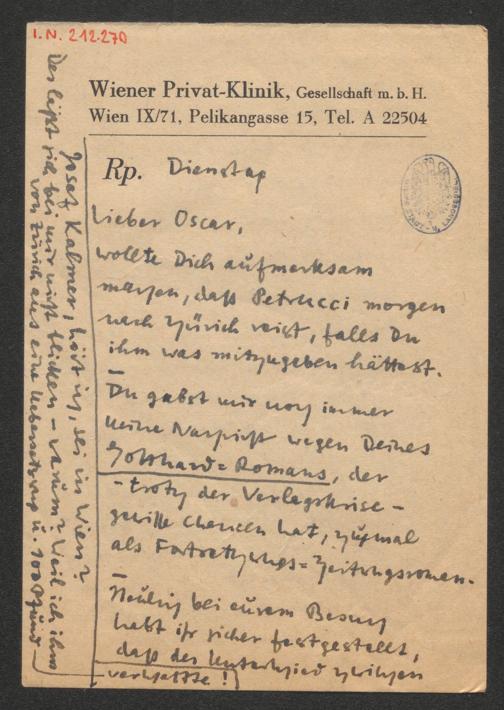 I.N. 212.270
Wiener Privat-Klinik, Gesellschaft m. b. H.
Wien IX/71, Pelikangasse 15, Tel. A 22504
Rp. Dienstag
Lieber Oscar,
wollte Dich aufmerksam
machen, daß Petrucci morgen
nach Zürich reist, falls Du
ihm was mitzugeben hättest.
Du gabst mir noch immer
keine Nachricht wegen Deines
Gotthard-Romans, der
- trotz der Verlagskrise -
gewisse Chancen hat, zumal
als Fortsetzungs-Zeitungsroman.
Neulich bei eurem Besuch
habt ihr sicher festgestellt,
daß der Unterschied zwischen
Josef Kalmer, hör ich, sei in Wien?
Der läßt sich bei mir nicht blicken - warum? Weil ich ihm
von Zürich aus eine Übersetzung u. 100 Pfund
verschaffte!